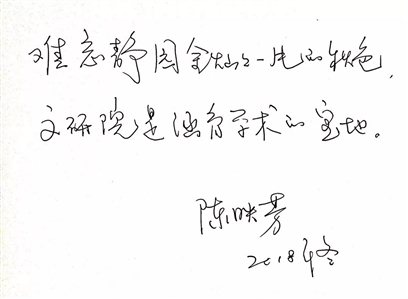 难忘静园金灿灿一片的秋色，
文研院是涵育学术的宝地。
陈映芳
2018年冬